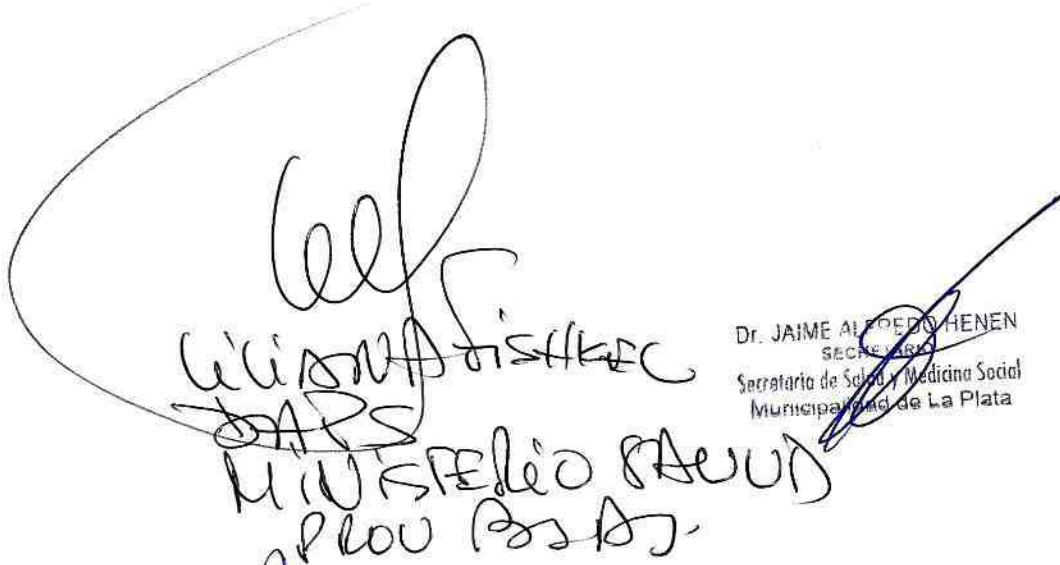 LiLiANA FiSHKEL
DAPS
MiNiSTERiO SALUD
PROV Bs As.
Dr. JAIME ALFREDO HENEN
SECRETARIO
Secretaría de Salud y Medicina Social
Municipalidad de La Plata